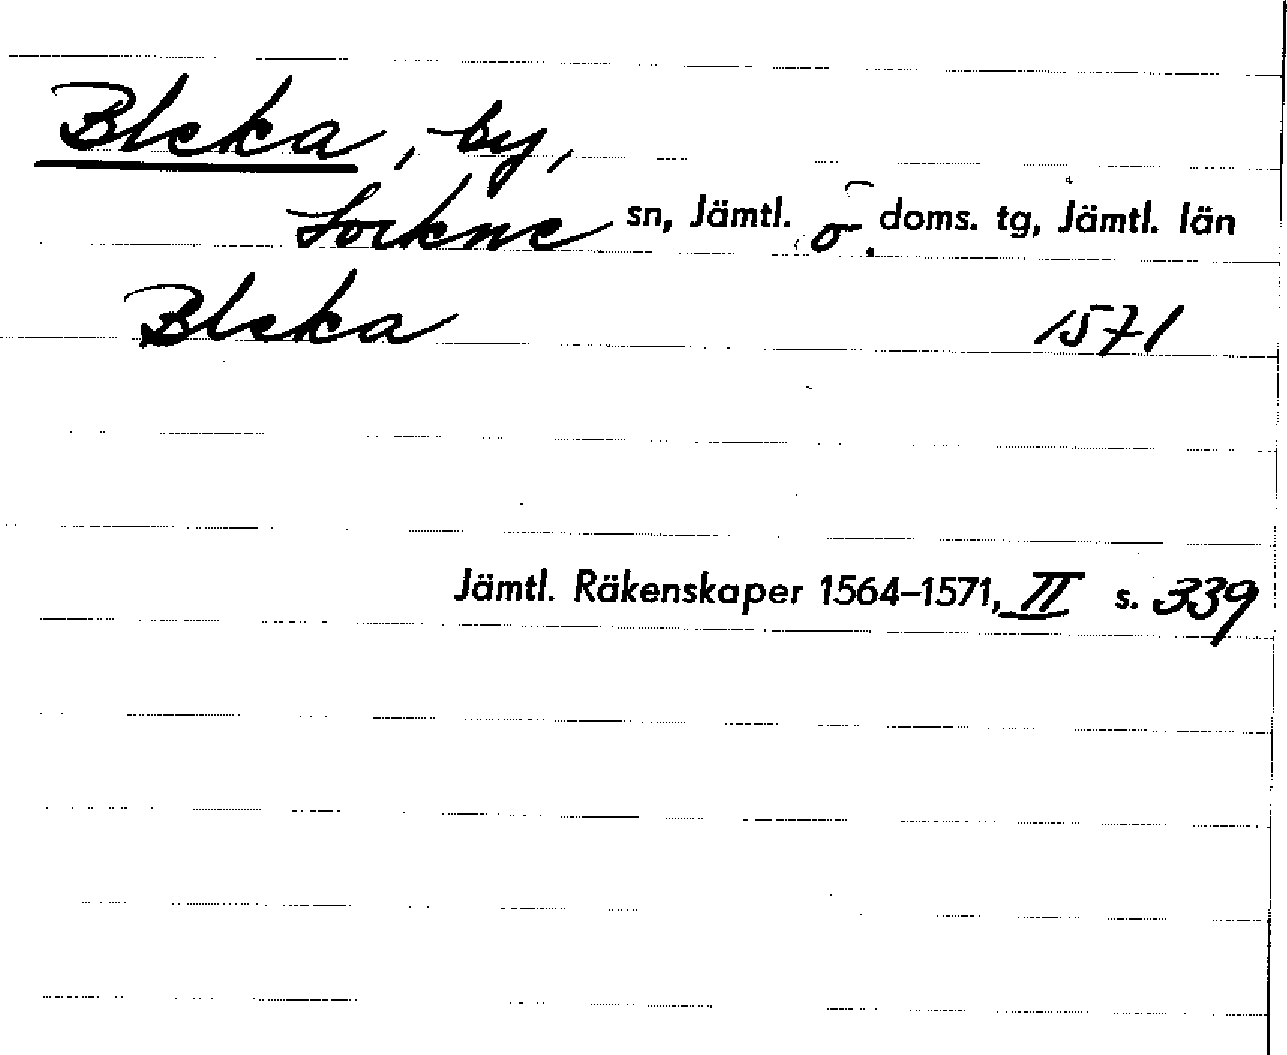 Bleka, by,
Lockne sn, Jämtl. ö. doms. tg, Jämtl. län
Bleka 1571
Jämtl. Räkenskaper 1564–1571, II s. 339